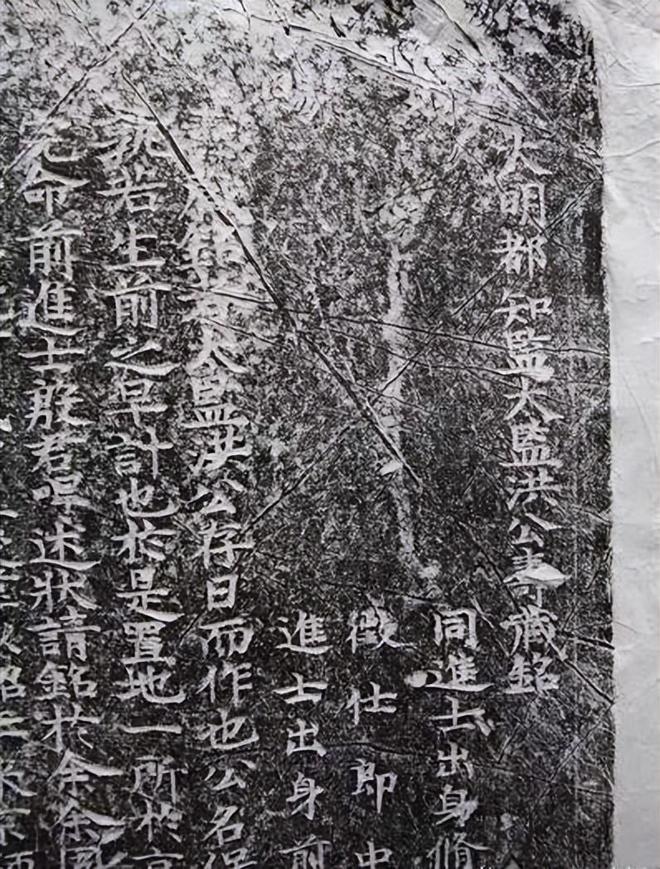 大明都知監太監洪公壽藏銘
同進士出身脩
徵仕郎中
進士出身前
壽藏銘者太監洪公存日而作也公名保
孰若生前之早計也於是置地一所於京
允命前進士般君啤述狀請銘於余余固